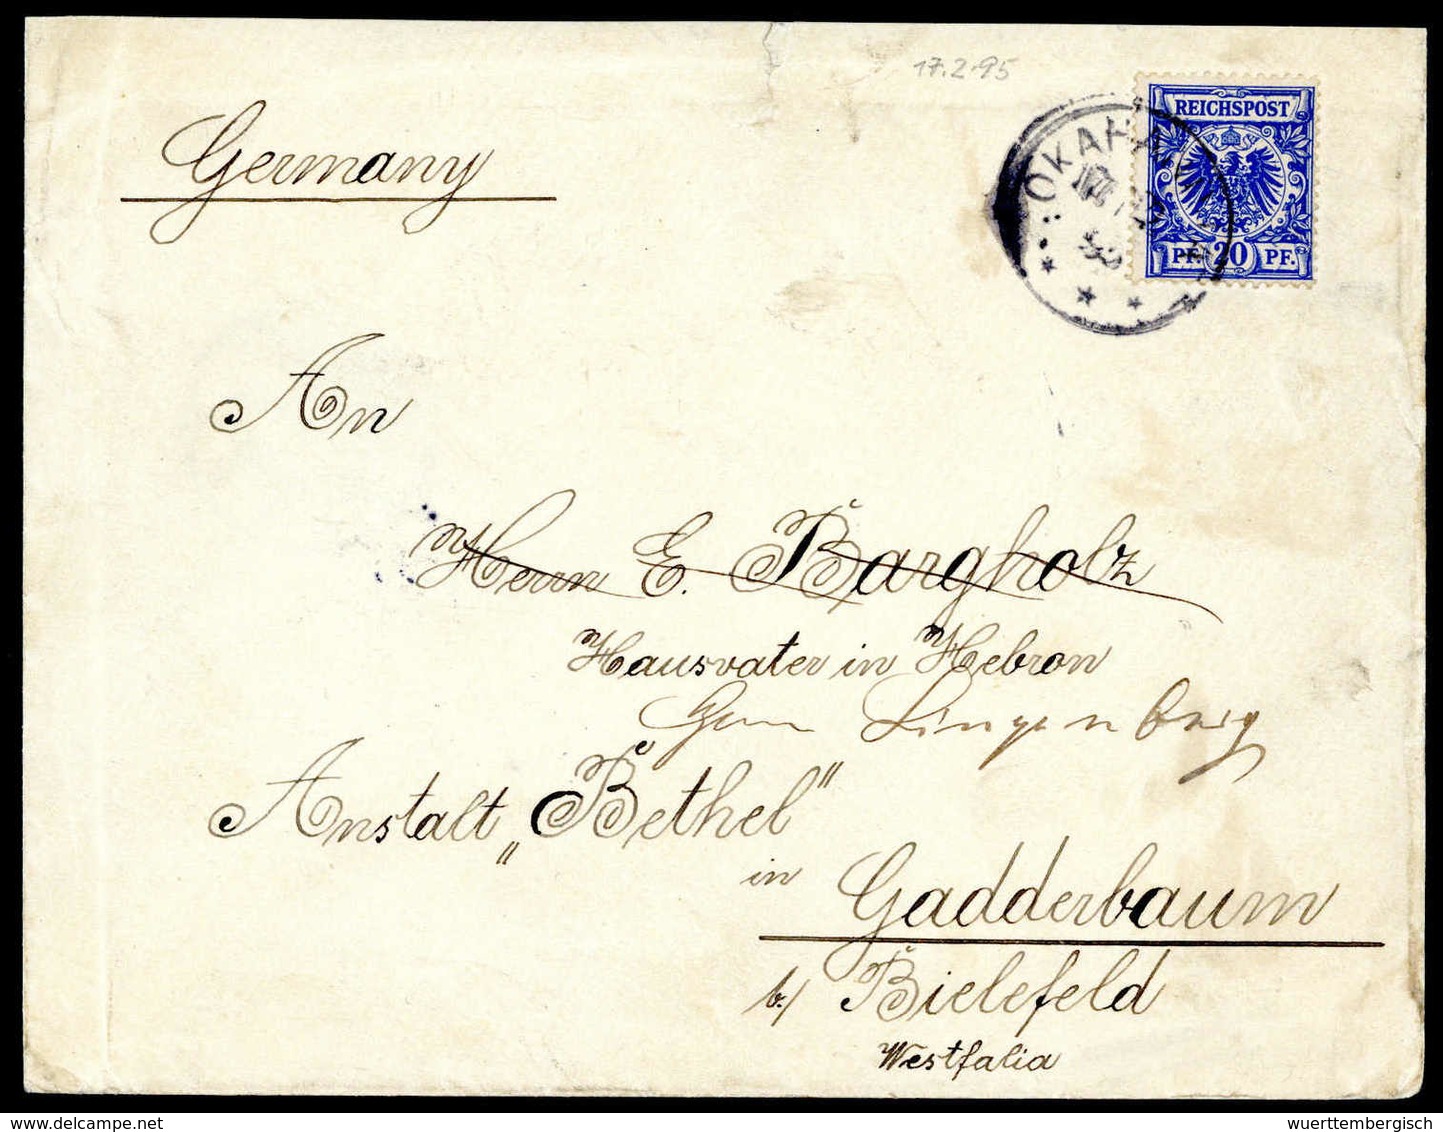 17.2.95
REICHSPOST
PF. 20 PF.
OKAHA
Germany
An
Herrn E. Bargholz
Hausvater in Hebron
Lingenberg
Anstalt „Bethel"
in
Gadderbaum
b./ Bielefeld
Westfalia
delcampe.net
wuerttembergisch